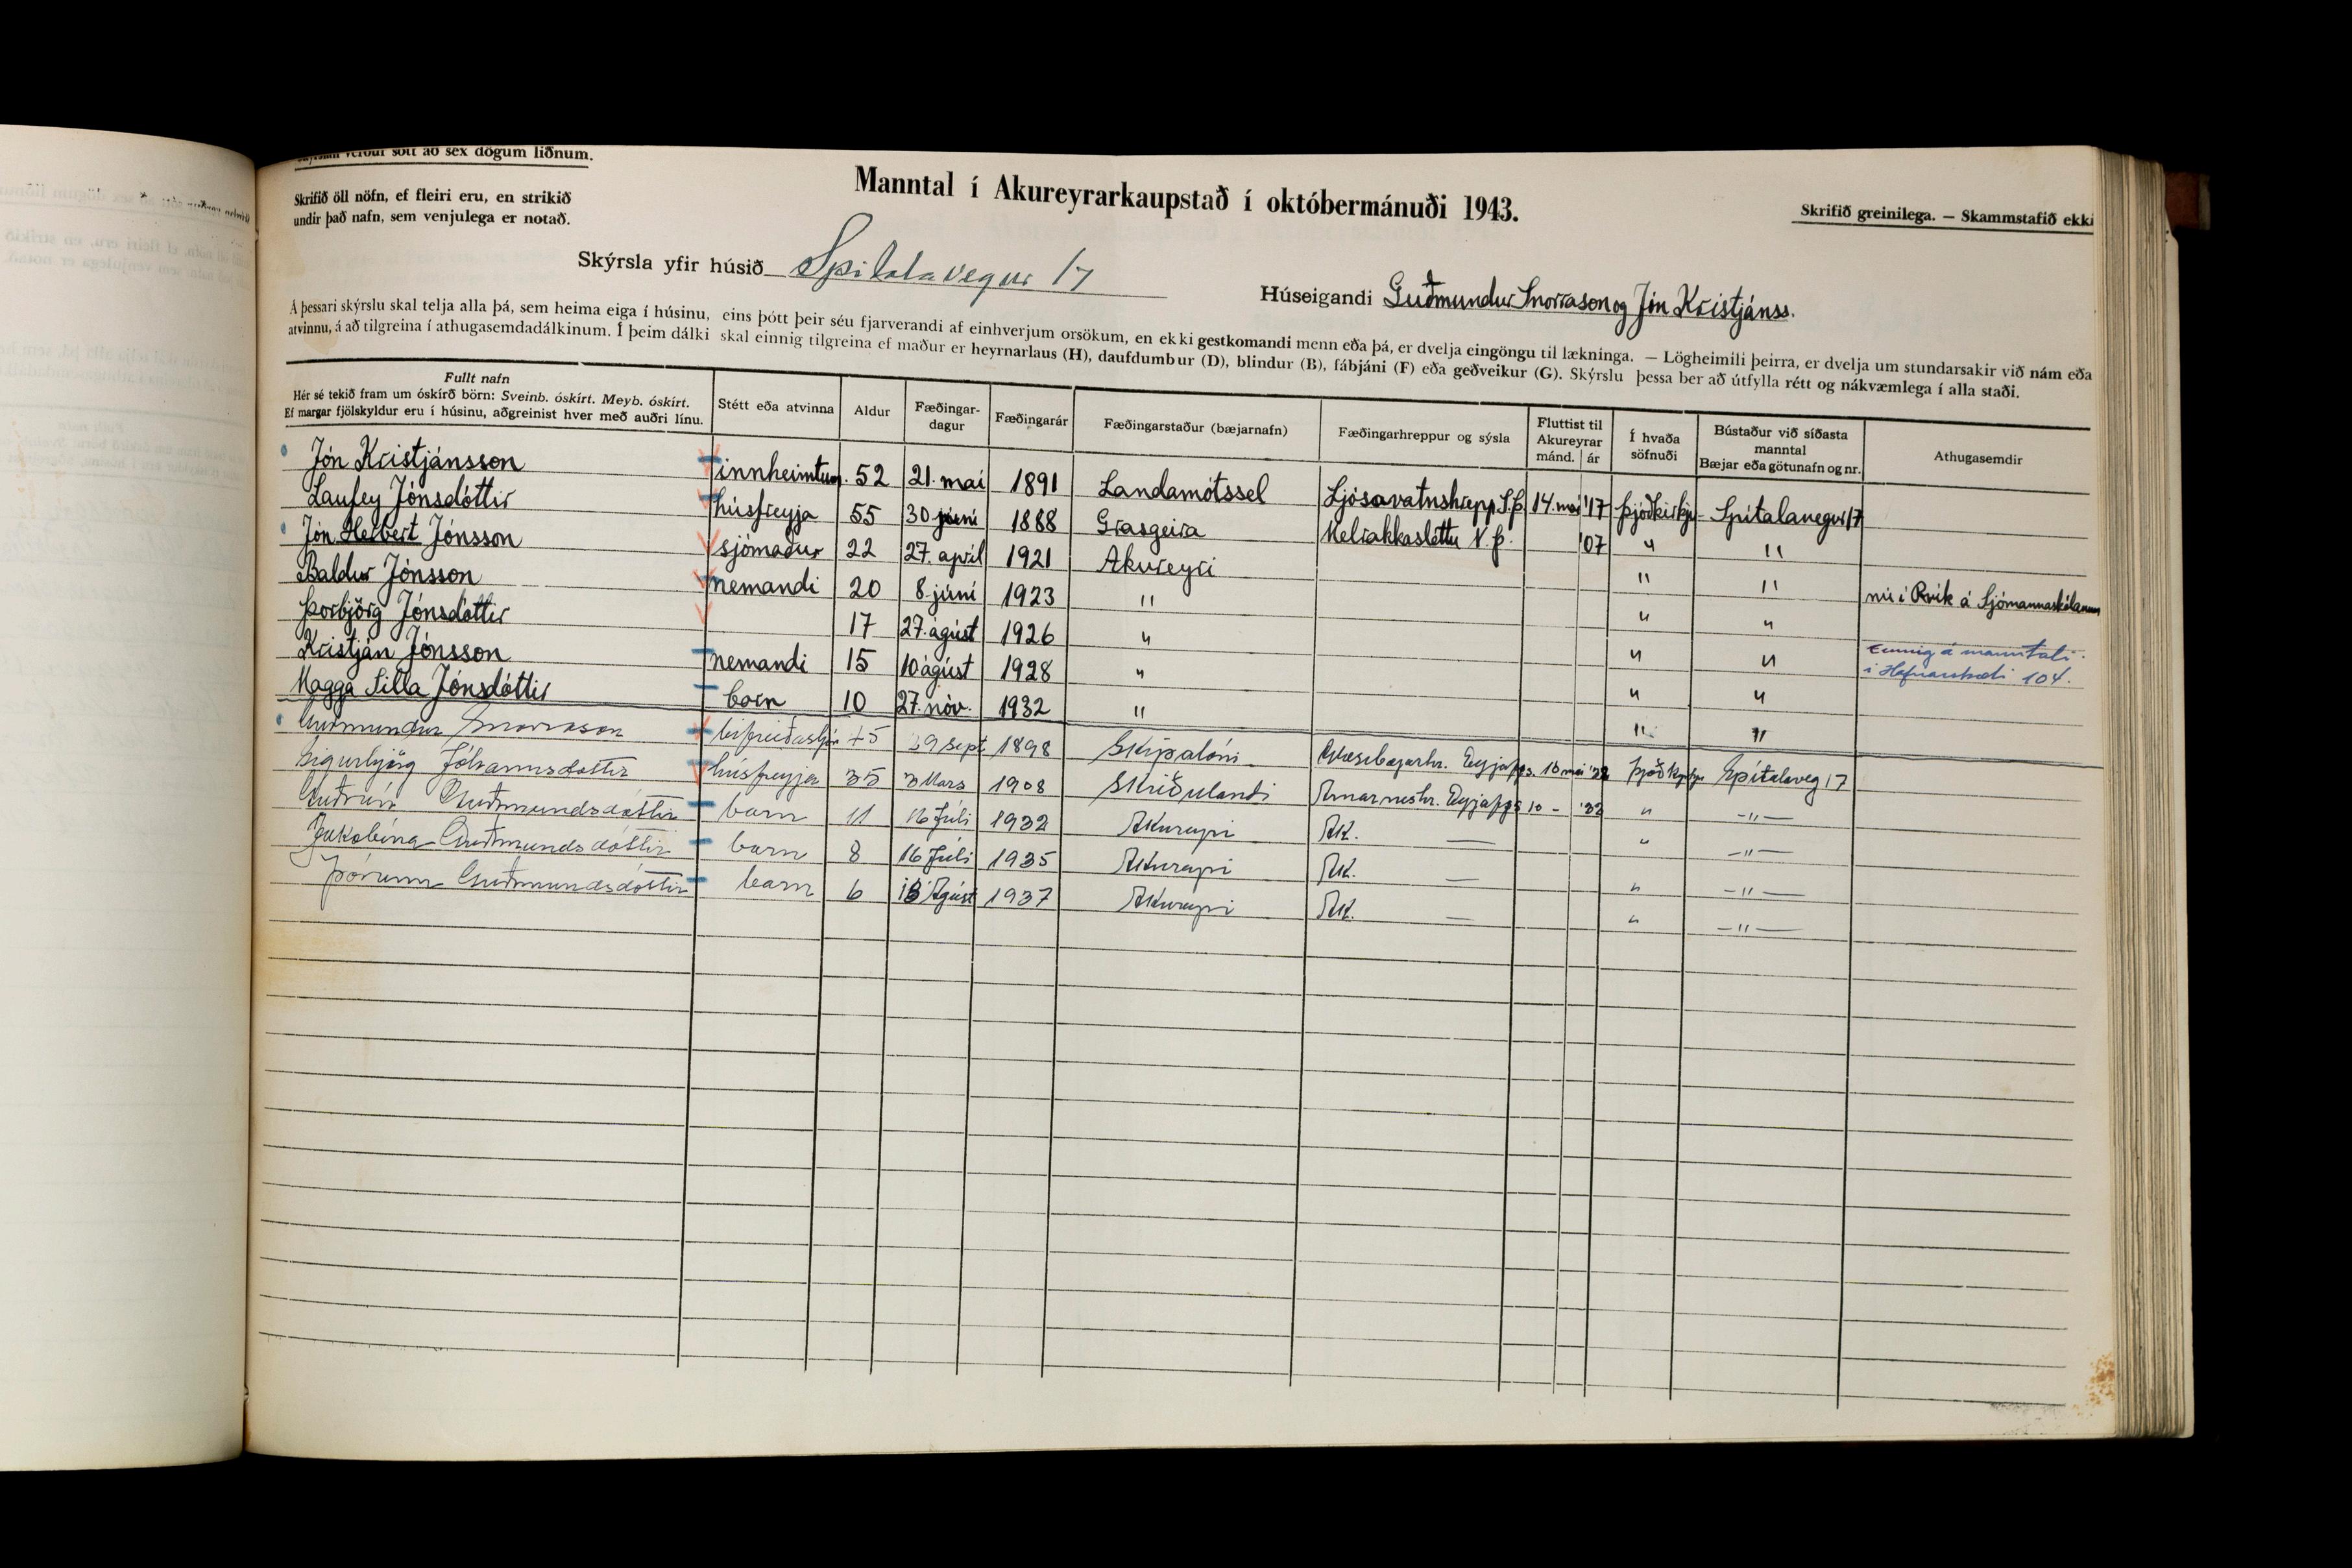 verður sótt að sex dögum liðnum.
Skrifið öll nöfn, ef fleiri eru, en strikið
undir það nafn, sem venjulega er notað.
Manntal í Akureyrarkaupstað í októbermánuði 1943.
Skrifið greinilega. — Skammstafið ekki
Skýrsla yfir húsið Spitalavegur 17
Húseigandi Guðmundur Snorrason og Jón Kristjánss.
Á þessari skýrslu skal telja alla þá, sem heima eiga í húsinu, eins þótt þeir séu fjarverandi af einhverjum orsökum, en ekki gestkomandi menn eða þá, er dvelja eingöngu til lækninga. — Lögheimili þeirra, er dvelja um stundarsakir við nám eða
atvinnu, á að tilgreina í athugasemdadálkinum. Í þeim dálki skal einnig tilgreina ef maður er heyrnarlaus (H), daufdumbur (D), blindur (B), fábjáni (F) eða geðveikur (G). Skýrslu þessa ber að útfylla rétt og nákvæmlega í alla staði.
Fullt nafn
Hér sé tekið fram um óskírð börn: Sveinb. óskírt. Meyb. óskírt.
Ef margar fjölskyldur eru í húsinu, aðgreinist hver með auðri línu.
Stétt eða atvinna
Aldur
Fæðingar-
dagur
Fæðingarár
Fæðingarstaður (bæjarnafn)
Fæðingarhreppur og sýsla
Fluttist til
Akureyrar
mánd. ár
Í hvaða
söfnuði
Bústaður við síðasta
manntal
Bæjar eða götunafn og nr.
Athugasemdir
Jón Kristjánsson innheimtum. 52 21. maí 1891 Landamótssel Ljósavatnshrepp S.Þ. 14. maí '17 Þjóðkirkju Spítalavegur 17
Laufey Jónsdóttir húsfreyja 55 30 júní 1888 Grasgeira Melrakkasléttu N.Þ. '07 " "
Jón Herbert Jónsson sjómaður 22 27. apríl 1921 Akureyri " " nú í Rvík á Sjómannaskólanum
Baldur Jónsson nemandi 20 8. júní 1923 " " "
Þorbjörg Jónsdóttir 17 27. ágúst 1926 " " " Einnig á manntali
í Hafnarstræti 104.
Kristján Jónsson nemandi 15 10 ágúst 1928 " " "
Magga Silla Jónsdóttir barn 10 27. nóv. 1932 " " "
Guðmundur Snorrason bifreiðastjóri 45 29 sept 1898 Skipalóni Eyjafjs. 10 maí Þjóðkirkju Spítalaveg 17
Sigurbjörg Jóhannsdóttir húsfreyja 35 3 Mars 1908 Skriðulandi Arnarneshr. Eyjafjs 10 - " -"-
Guðrún Guðmundsdóttir barn 11 16 Júlí 1932 Akureyri Ak. — " -"-
Jakobína Guðmundsdóttir barn 8 16 Júlí 1935 Akureyri Ak. — " -"-
Þórunn Guðmundsdóttir barn 6 18 Ágúst 1937 Akureyri Ak. — " -"-